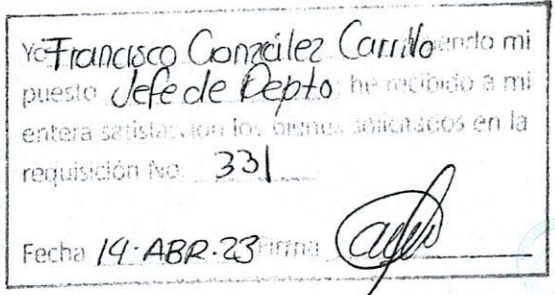 Yo Francisco González Carrillo siendo mi
puesto Jefe de Depto he recibido a mi
entera satisfacción los bienes solicitados en la
requisición No. 331
Fecha 14·ABR·23 Firma